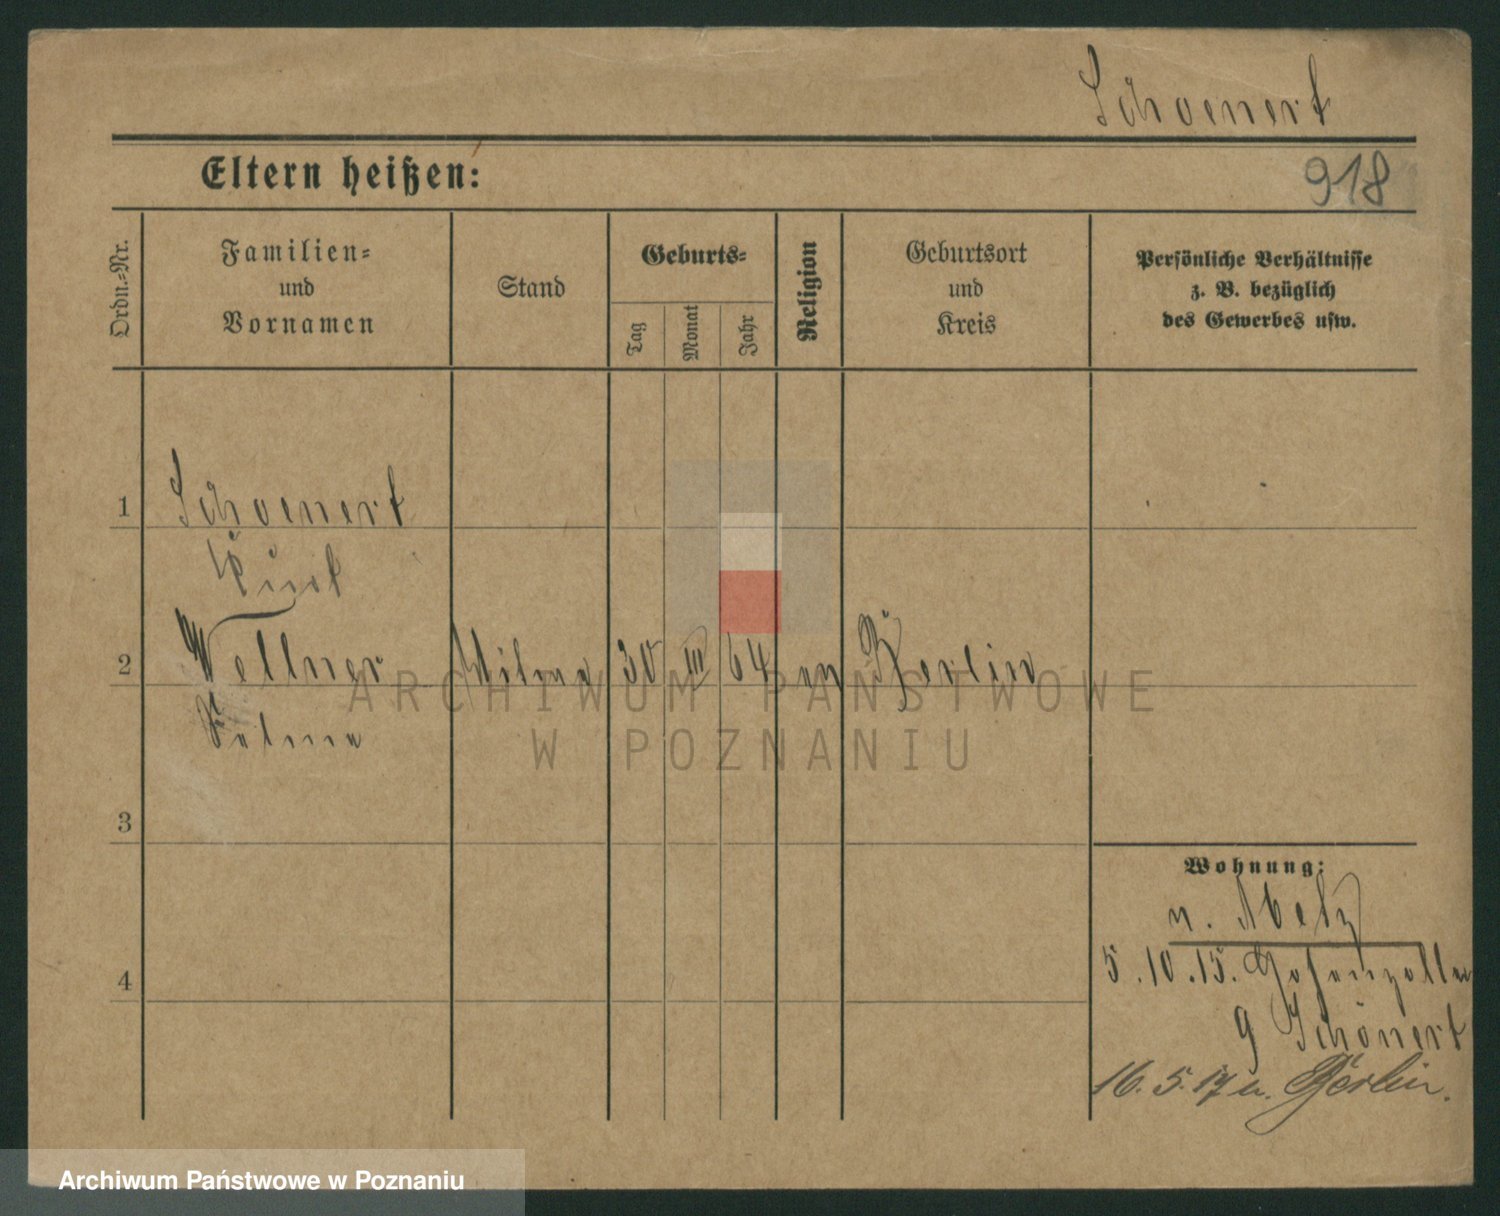 Schoenert
Eltern heißen:
918
Ordn.=Nr.
Familien=
und
Vornamen
Stand
Geburts=
Tag
Monat
Jahr
Religion
Geburtsort
und
Kreis
Persönliche Verhältnisse
z. B. bezüglich
des Gewerbes usw.
1
Schoenert
Kurl
2
Wellner
Witwe 30 III 64 ev Berlin
Selma
3
4
Wohnung:
n. Metz
5.10.15. Hohenzoller
9 Schönert
16.5.17 n. Berlin.
ARCHIWUM PAŃSTWOWE
W POZNANIU
Archiwum Państwowe w Poznaniu